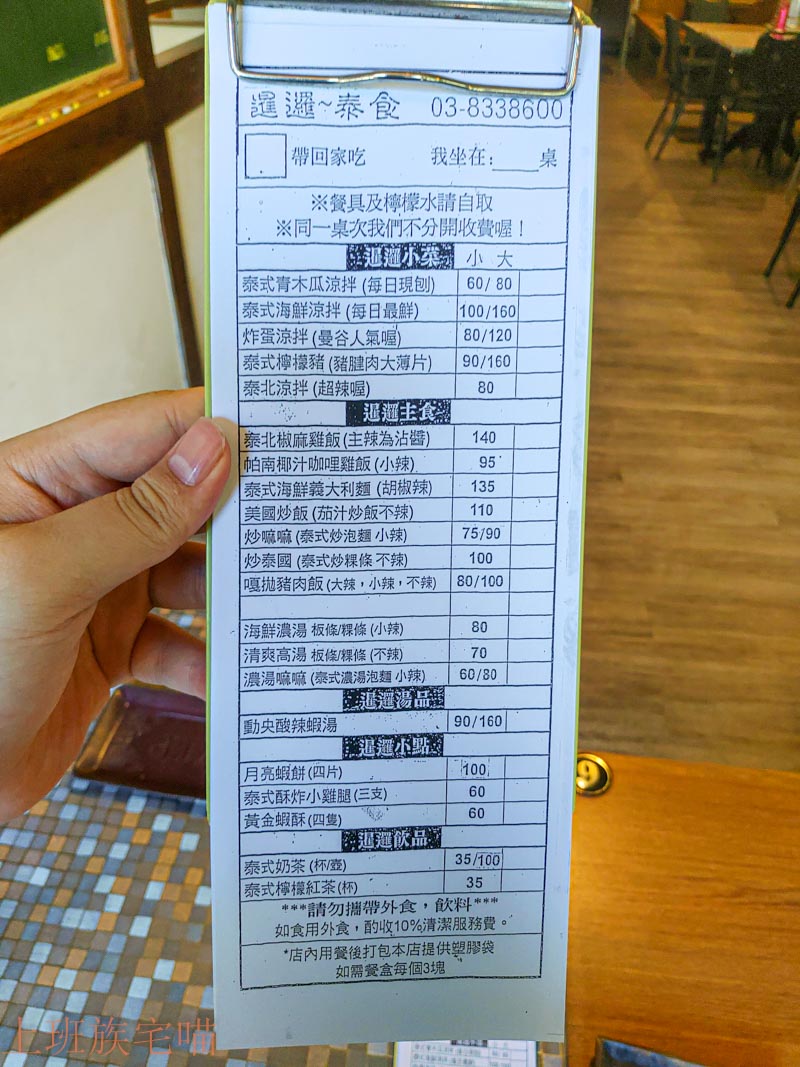 暹邏~泰食 03-8338600
帶回家吃 我坐在:____桌
※餐具及檸檬水請自取
※同一桌次我們不分開收費喔!
暹邏小菜 小 大
泰式青木瓜涼拌 (每日現刨) 60/ 80
泰式海鮮涼拌 (每日最鮮) 100/160
炸蛋涼拌 (曼谷人氣喔) 80/120
泰式檸檬豬 (豬腱肉大薄片) 90/160
泰北涼拌 (超辣喔) 80
暹邏主食
泰北椒麻雞飯 (主辣為沾醬) 140
帕南椰汁咖哩雞飯 (小辣) 95
泰式海鮮義大利麵 (胡椒辣) 135
美國炒飯 (茄汁炒飯不辣) 110
炒嘛嘛 (泰式炒泡麵 小辣) 75/90
炒泰國 (泰式炒粿條 不辣) 100
嘎拋豬肉飯 (大辣，小辣，不辣) 80/100
海鮮濃湯 板條/粿條 (小辣) 80
清爽高湯 板條/粿條 (不辣) 70
濃湯嘛嘛 (泰式濃湯泡麵 小辣) 60/80
暹邏湯品
動央酸辣蝦湯 90/160
暹邏小點
月亮蝦餅 (四片) 100
泰式酥炸小雞腿 (三支) 60
黃金蝦酥 (四隻) 60
暹邏飲品
泰式奶茶 (杯/壺) 35/100
泰式檸檬紅茶 (杯) 35
***請勿攜帶外食，飲料***
如食用外食，酌收10%清潔服務費。
*店內用餐後打包本店提供塑膠袋
如需餐盒每個3塊
9
上班族宅喵